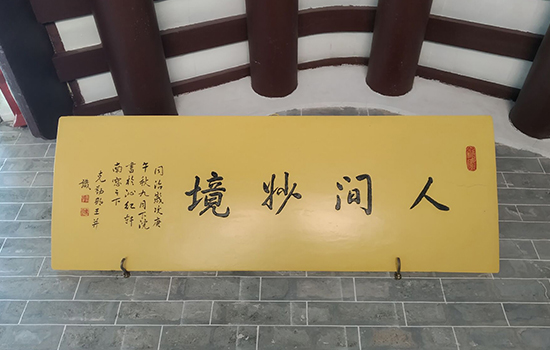 人间妙境
同治歲次庚
午秋九月下浣
書於沁紅軒
南窗之下
克勤郡王并
識